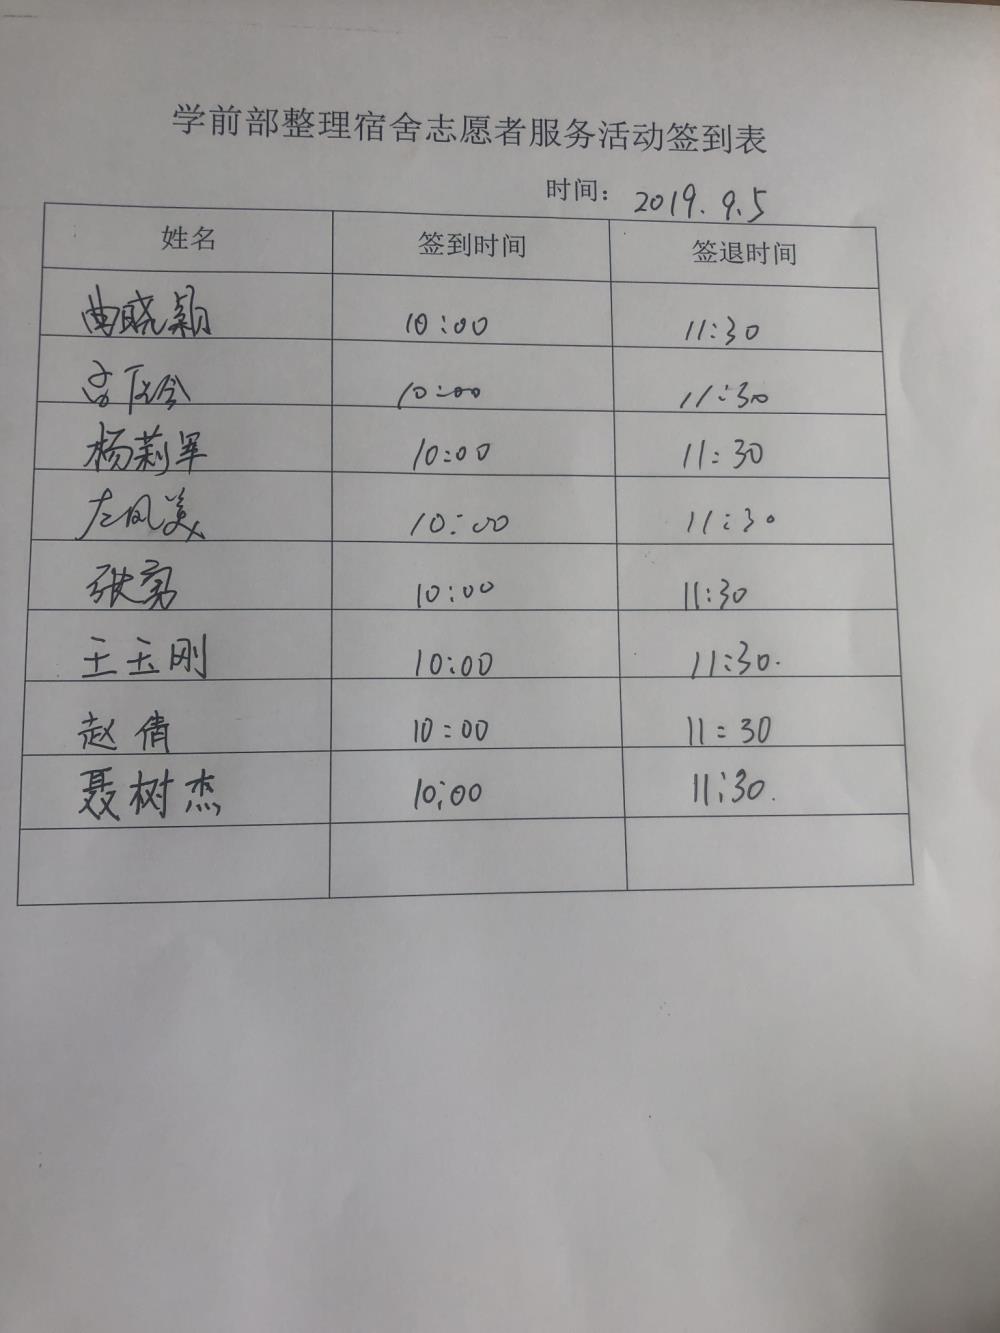 学前部整理宿舍志愿者服务活动签到表
时间： 2019.9.5
姓名 签到时间 签退时间
曲晓颖 10:00 11:30
10:00 11:30
杨莉军 10:00 11:30
左凤美 10:00 11:30
张勇 10:00 11:30
王玉刚 10:00 11:30.
赵倩 10:00 11:30
聂树杰 10:00 11:30.